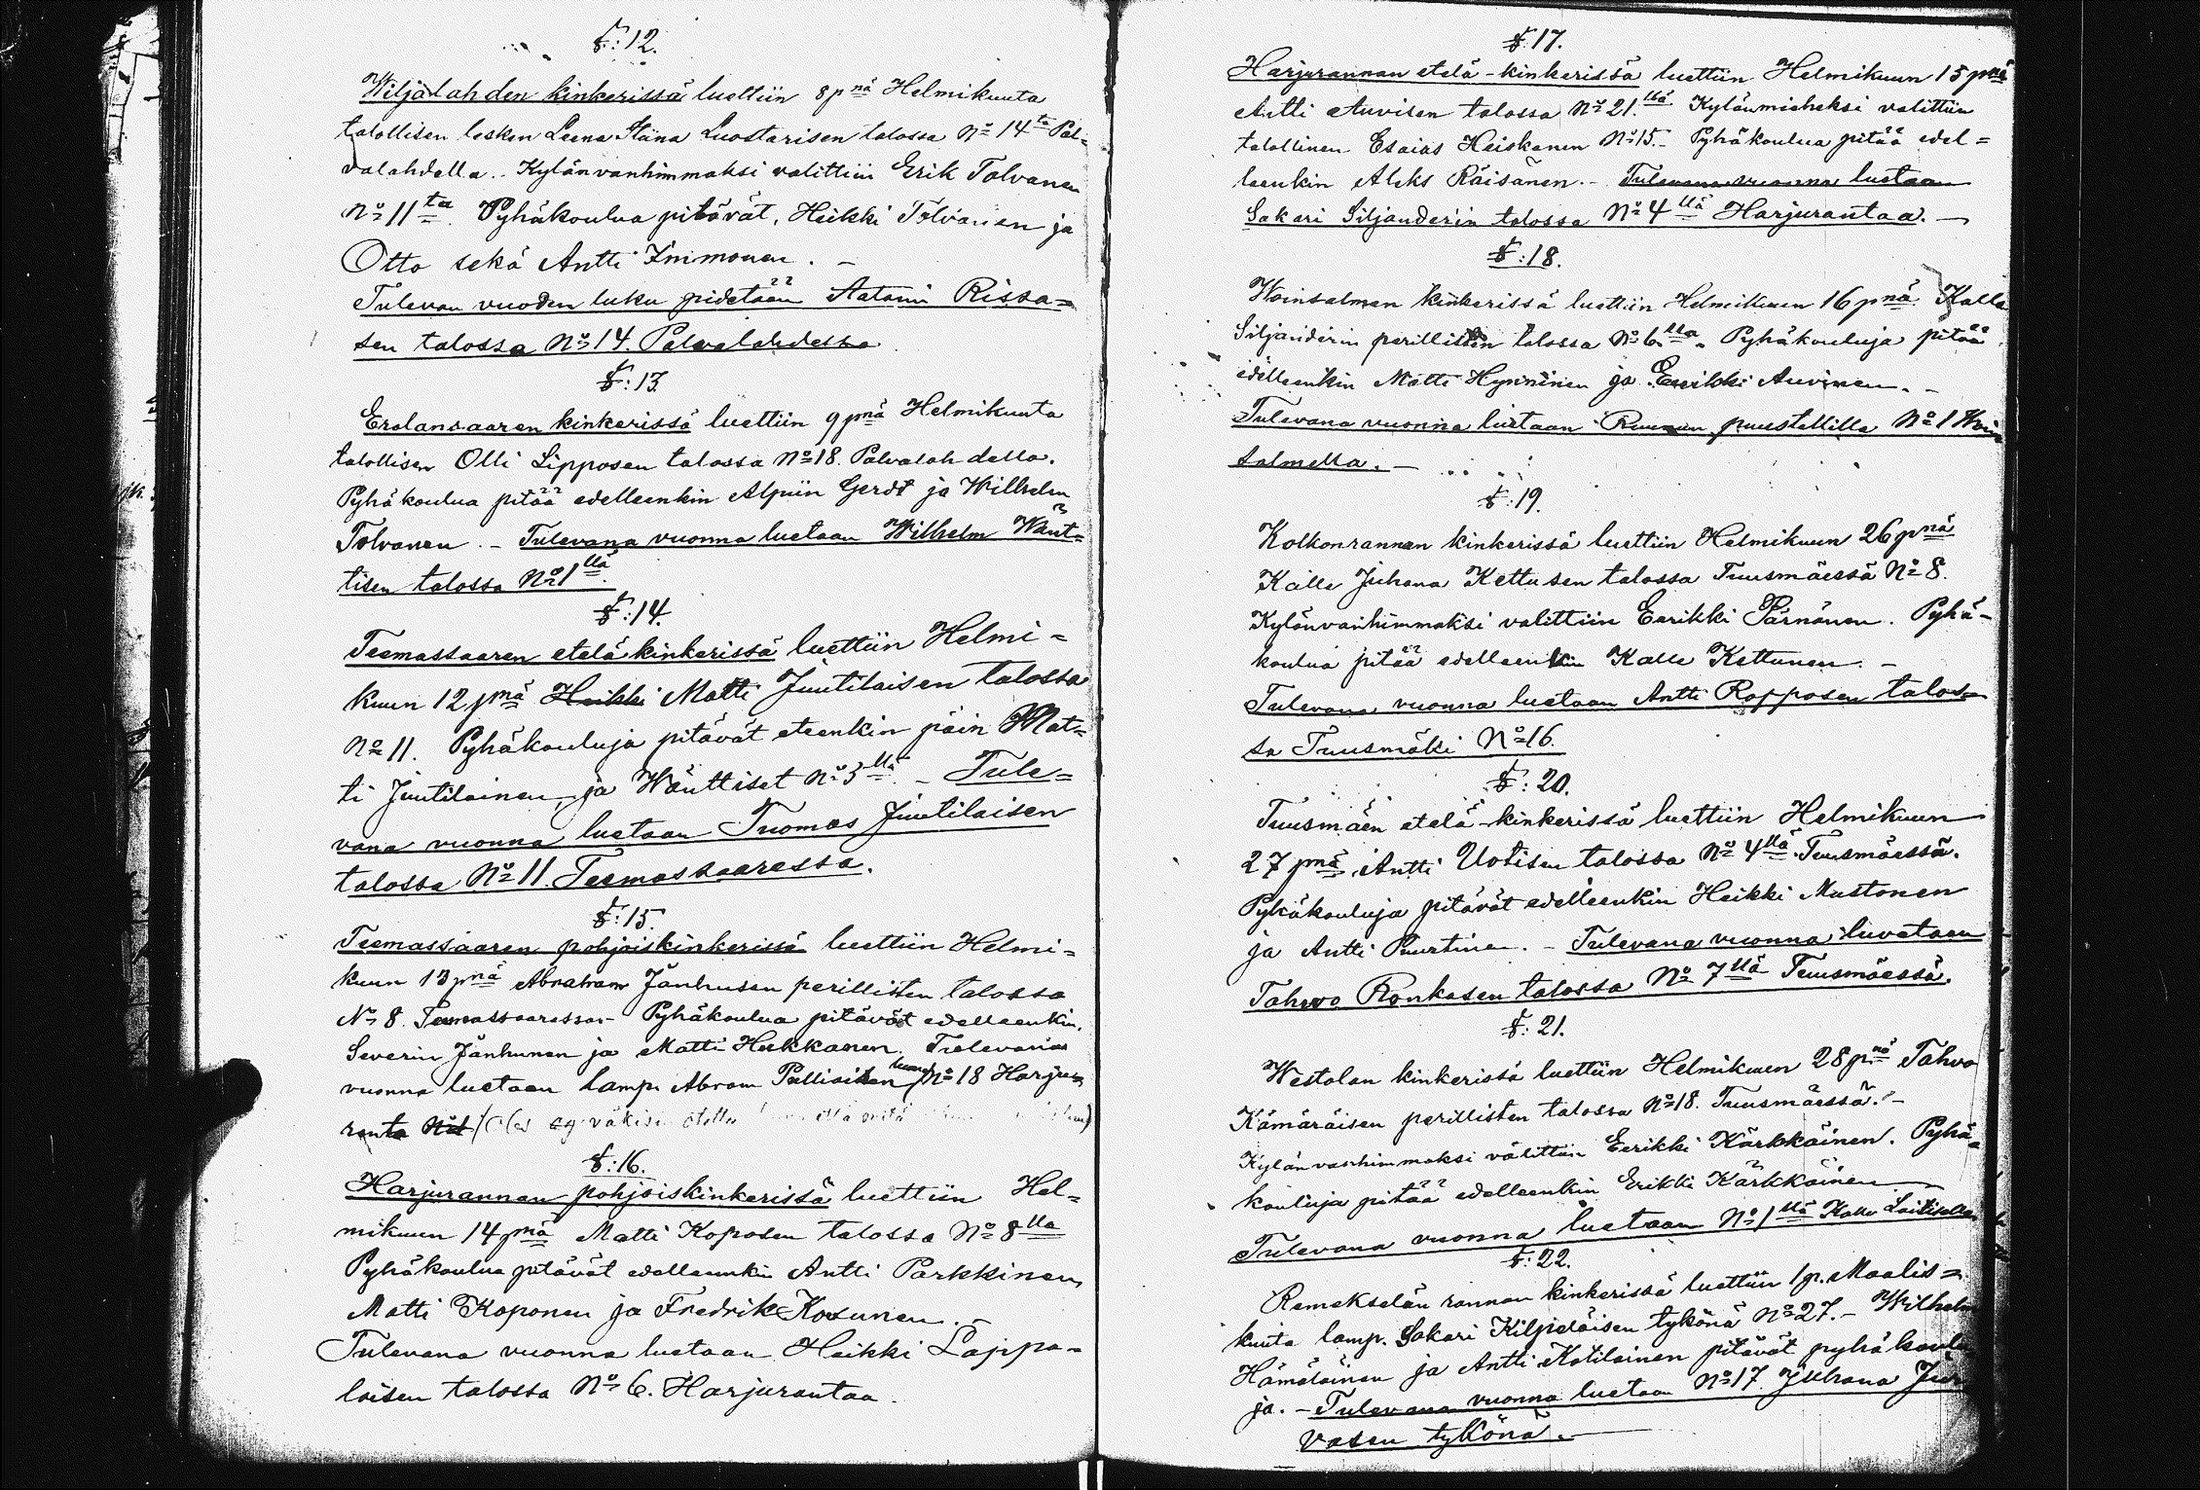 §:12.
Wiljalahden kinkerissä luettiin 8 pnä Helmikuuta
talollisen lesken Leena Stiina Luostarisen talossa No 14ta Pal=
valahdella. Kylänvanhimmaksi valittiin Erik Tolvanen
No 11ta. Pyhäkoulua pitävät, Heikki Tolvanen ja
Otto sekä Antti Immonen. –
Tulevan vuoden luku pidetään Aatami Rissa=
sen talossa No 14. Palvalahdessa
§:13.
Erolansaaren kinkerissä luettiin 9 pnä Helmikuuta
talollisen Olli Lipposen talossa No 18. Palvalahdella.
Pyhäkoulua pitää edelleenkin Alpiin Gerdt ja Wilhelm
Tolvanen. – Tulevana vuonna luetaan Wilhelm Wänt=
tisen talossa No 1llä.
§:14.
Teemassaaren eteläkinkerissä luettiin Helmi=
kuun 12 pnä Heikki Matti Juutilaisen talossa
No 11. Pyhäkouluja pitävät eteenkin päin Mat=
ti Juutilainen, ja Wänttiset No 3lla. – Tule=
vana vuonna luetaan Tuomas Juutilaisen
talossa No 11. Teemassaaressa.
§:15.
Teemassaaren pohjoiskinkerissä luettiin Helmi=
kuun 13 pnä Abraham Jänhusen perillisten talossa
No 8. Teemassaaressa – Pyhäkoulua pitävät edelleenkin,
Severin Jänhunen ja Matti Hukkanen. Tulevana
vuonna luetaan lamp. Abram Pulliaisen luona No 18 Harju=
ranta
§:16.
Harjurannan pohjoiskinkerissä luettiin Hel=
mikuun 14 pnä Matti Koposen talossa No 8lla
Pyhäkoulua pitävät edelleenkin Antti Parkkinen,
Matti Koponen ja Fredrik Kosunen. –
Tulevana vuonna luetaan Heikki Lappa=
laisen talossa No 6. Harjurantaa.
§:17.
Harjurannan etelä-kinkerissä luettiin Helmikuun 15 pnä
Antti Auvisen talossa No 21.llä Kylänmieheksi valittiin
talollinen Esaias Heiskanen No 15. – Pyhäkoulua pitää edel=
leenkin Aleks Räisänen. – Tulevana vuonna luetaan
Sakari Siljanderin talossa No 4llä Harjurantaa. –
§:18.
Woinsalmen kinkerissä luettiin Helmikuun 16 pnä. Kalle
Siljanderin perillisten talossa No 6.lla. Pyhäkouluja pitää
edelleenkin Matti Hynninen ja Eerikki Auvinen. –
Tulevana vuonna luetaan Ruunun puustellilla No 1 Woin
salmella. –
§:19.
Kolkonrannan kinkerissä luettiin Helmikuun 26 pnä
Kalle Juhana Kettusen talossa Tuusmäessä No 8.
Kylänvanhimmaksi valittiin Eerikki Pärnänen. Pyhä-
koulua pitää edelleenkin Kalle Kettunen. –
Tulevana vuonna luetaan Antti Ropposen talos=
sa Tuusmäki No 16.
§:20.
Tuusmäen etelä-kinkerissä luettiin Helmikuun
27 pnä Antti Uotisen talossa No 4llä. Tuusmäessä.
Pyhäkouluja pitävät edelleenkin Heikki Mustonen
ja Antti Puurtinen. – Tulevana vuonna luvetaan
Tahvo Ronkasen talossa No 7llä Tuusmäessä.
§:21.
Westolan kinkerissä luettiin Helmikuun 28 pnä Tahvo
Kämäräisen perillisten talossa No 18. Tuusmäessä. –
Kylänvanhimmaksi valittiin Eerikki Kärkkäinen. Pyhä=
kouluja pitää edelleenkin Erikki Kärkkäinen –
Tulevana vuonna luetaan No 1llä Kalle Laitisella
§:22.
Remekselän rannan kinkerissä luettiin 1 p. Maalis=
kuuta lamp. Sakari Kilpeläisen tykönä No 27. – Wilhelm
Hämäläinen ja Antti Kotilainen pitävät pyhäkoulu
ja. – Tulevana vuonna luetaan No 17 Juhana Jur
vasen tykönä. –